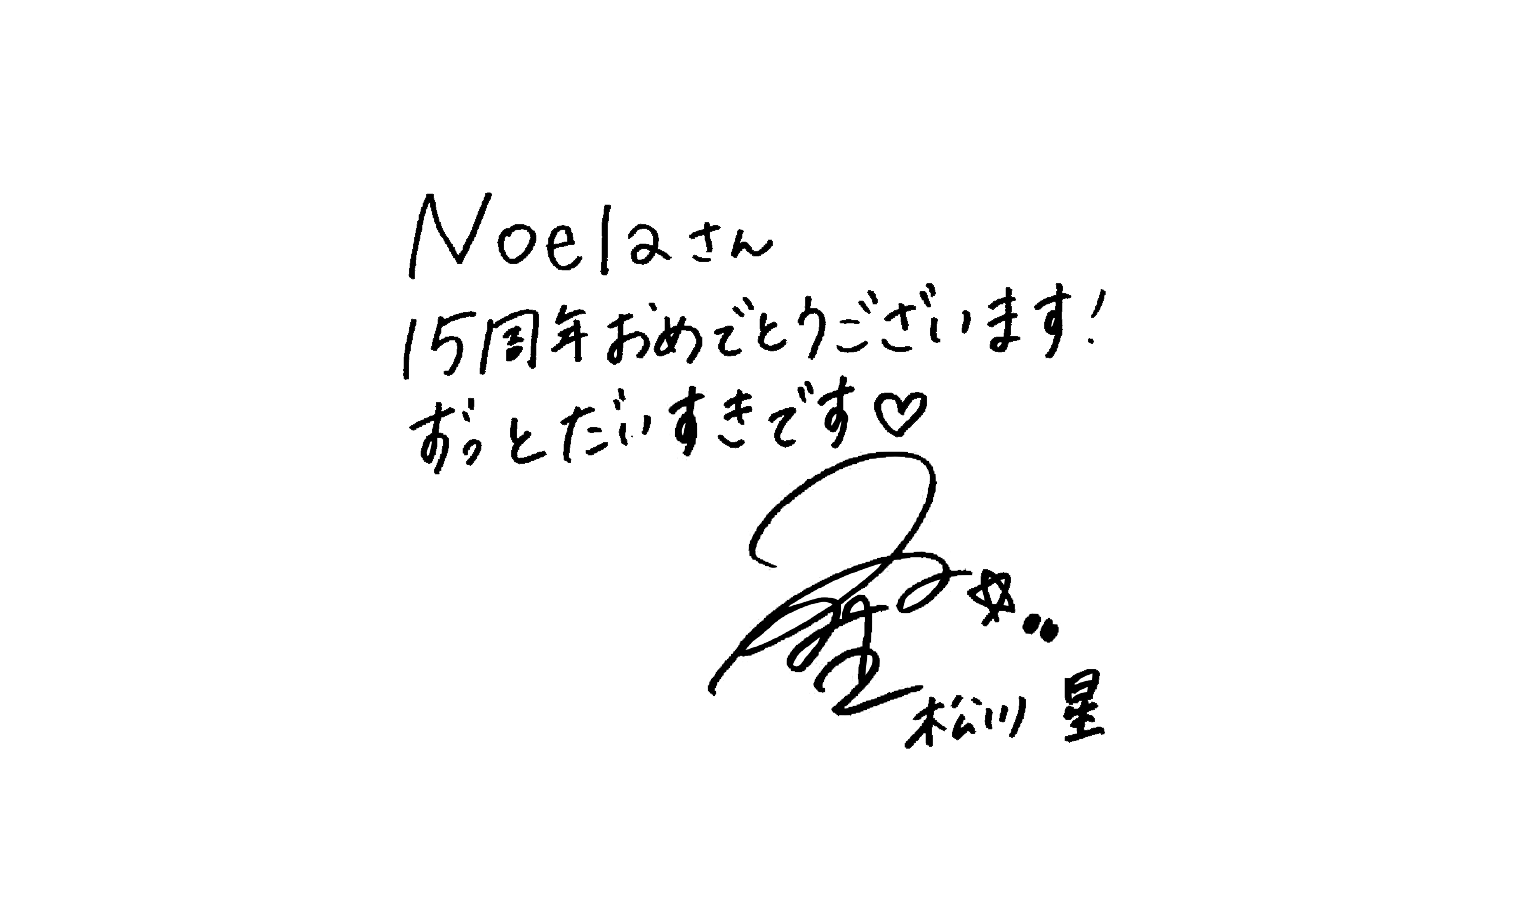 Noelaさん
15周年おめでとうございます!
ずっとだいすきです♡
松川 星